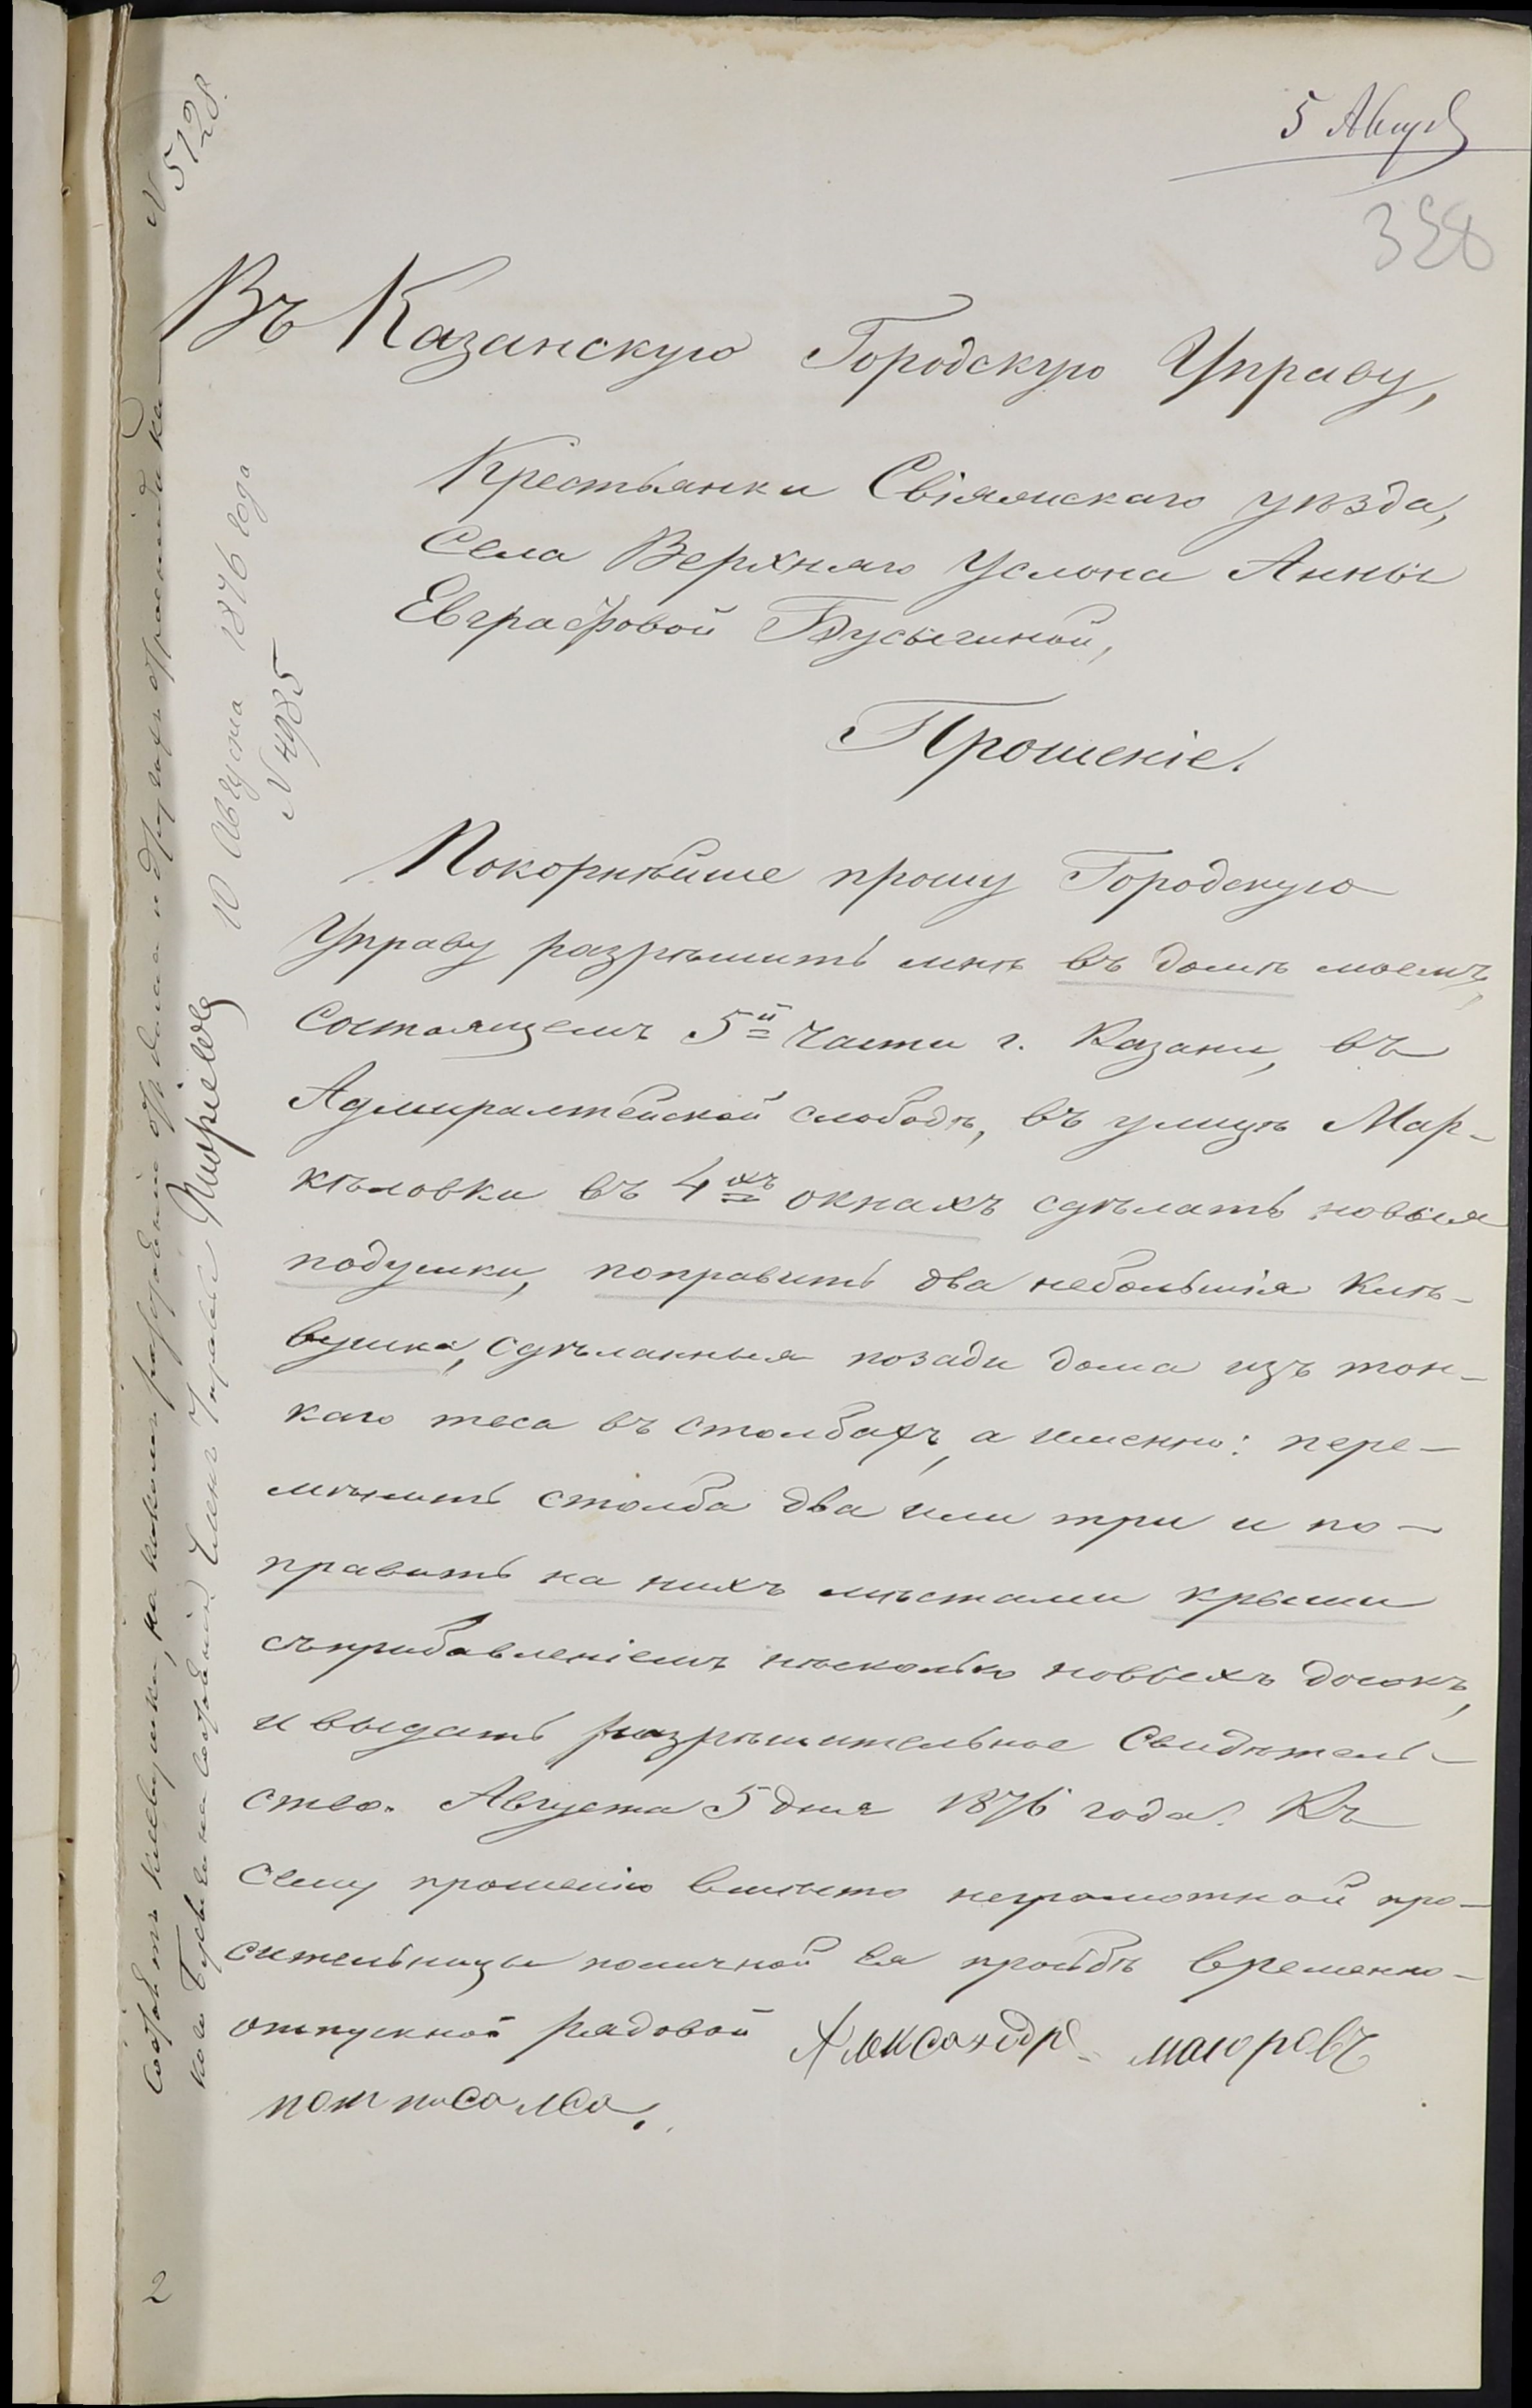 5 Авгус
358
№ 5128.
Въ Казанскую Городскую Управу,
Крестьянки Свіяжскаго уѣзда,
Села Верхняго Услона Анны
Евграфовой Бусыгиной,
Прошеніе.
Покорнѣйше прошу Городскую
Управу разрѣшить мнѣ въ домѣ моемъ,
состоящемъ 5й части г. Казани, въ
Адмиралтейской слободѣ, въ улицѣ Мар-
кѣловки въ 4хъ окнахъ сдѣлать новыя
подушки, поправить два небольшія клѣ-
вушка, сдѣланныя позади дома изъ тон-
каго теса въ столбахъ, а именно: пере-
мѣнить столба два или три и по-
править на нихъ мѣстами крыши
съ прибавленіемъ нѣсколько новыхъ досокъ,
и выдать разрѣшительное свидѣтель-
ство. Августа 5 дня 1876 года. Къ
сему прошенію вмѣсто неграмотной про-
сительницы по личной ея просьбѣ временно-
отпускной рядовой Александръ маюровъ
потписалса.
10 Августа 1876 года
№ 4985
клевушки, на какомъ
Членъ Управы
2